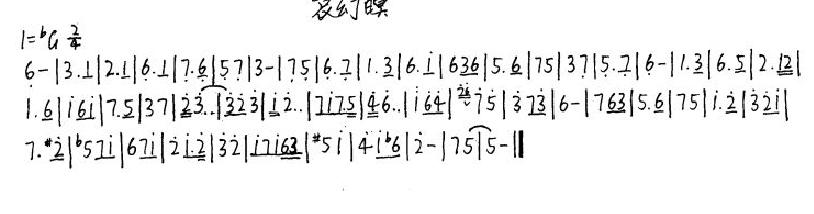 幻瞑
1=ᵇG 2/4
6-|3.1|2.1|6.1|7.6|57|3-|75|6.7|1.3|6.i|636|5.6|75|37|5.7|6-|1.3|6.5|2.12|
1.6|i6i|7.5|37|23..|323|12..|7i75|46..|i64|75|373|6-|763|5.6|75|i.2|32i|
7.#2|ᵇ57i|67i|2i.2|32|i7i63|#5i|4iᵇ6|2-|75|5-‖